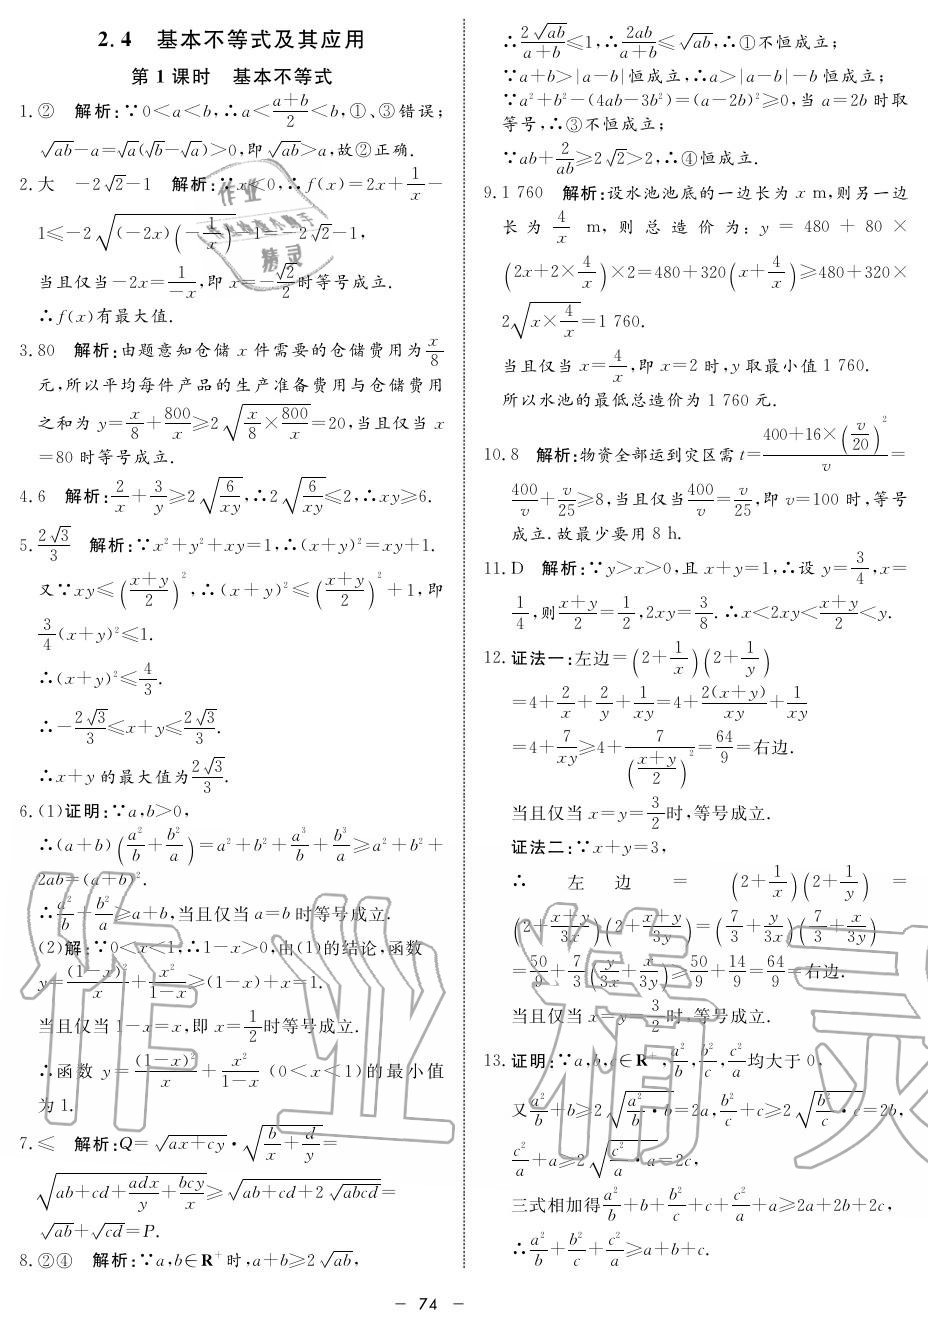 2.4 基本不等式及其应用
第1课时 基本不等式
1.② 解析:∵0<a<b,∴a<(a+b)/2<b,①、③错误;
√(ab)-a=√a(√b-√a)>0,即√(ab)>a,故②正确.
2.大 -2√2-1 解析:∵x<0,∴f(x)=2x+1/x-
1≤-2√((-2x)(-1/x))-1=-2√2-1,
当且仅当-2x=1/(-x),即x=-√2/2时等号成立.
∴f(x)有最大值.
3.80 解析:由题意知仓储x件需要的仓储费用为x/8
元,所以平均每件产品的生产准备费用与仓储费用
之和为y=x/8+800/x≥2√(x/8×800/x)=20,当且仅当x
=80时等号成立.
4.6 解析:2/x+3/y≥2√(6/(xy)),∴2√(6/(xy))≤2,∴xy≥6.
5.2√3/3 解析:∵x²+y²+xy=1,∴(x+y)²=xy+1.
又∵xy≤((x+y)/2)²,∴(x+y)²≤((x+y)/2)²+1,即
3/4(x+y)²≤1.
∴(x+y)²≤4/3.
∴-2√3/3≤x+y≤2√3/3.
∴x+y的最大值为2√3/3.
6.(1)证明:∵a,b>0,
∴(a+b)(a²/b+b²/a)=a²+b²+a³/b+b³/a≥a²+b²+
2ab=(a+b)².
∴a²/b+b²/a≥a+b,当且仅当a=b时等号成立.
(2)解:∵0<x<1,∴1-x>0,由(1)的结论,函数
y=(1-x)²/x+x²/(1-x)≥(1-x)+x=1.
当且仅当1-x=x,即x=1/2时等号成立.
∴函数y=(1-x)²/x+x²/(1-x)(0<x<1)的最小值
为1.
7.≤ 解析:Q=√(ax+cy)·√(b/x+d/y)=
√(ab+cd+adx/y+bcy/x)≥√(ab+cd+2√(abcd))=
√(ab)+√(cd)=P.
8.②④ 解析:∵a,b∈R⁺时,a+b≥2√(ab),
∴2√(ab)/(a+b)≤1,∴2ab/(a+b)≤√(ab),∴①不恒成立;
∵a+b>|a-b|恒成立,∴a>|a-b|-b恒成立;
∵a²+b²-(4ab-3b²)=(a-2b)²≥0,当a=2b时取
等号,∴③不恒成立;
∵ab+2/(ab)≥2√2>2,∴④恒成立.
9.1 760 解析:设水池池底的一边长为x m,则另一边
长为4/x m,则总造价为:y=480+80×
(2x+2×4/x)×2=480+320(x+4/x)≥480+320×
2√(x×4/x)=1 760.
当且仅当x=4/x,即x=2时,y取最小值1 760.
所以水池的最低总造价为1 760元.
10.8 解析:物资全部运到灾区需t=(400+16×(v/20)²)/v=
400/v+v/25≥8,当且仅当400/v=v/25,即v=100时,等号
成立.故最少要用8 h.
11.D 解析:∵y>x>0,且x+y=1,∴设y=3/4,x=
1/4,则(x+y)/2=1/2,2xy=3/8.∴x<2xy<(x+y)/2<y.
12.证法一:左边=(2+1/x)(2+1/y)
=4+2/x+2/y+1/(xy)=4+2(x+y)/(xy)+1/(xy)
=4+7/(xy)≥4+7/((x+y)/2)²=64/9=右边.
当且仅当x=y=3/2时,等号成立.
证法二:∵x+y=3,
∴左边=(2+1/x)(2+1/y)=
(2+(x+y)/(3x))(2+(x+y)/(3y))=(7/3+y/(3x))(7/3+x/(3y))
=50/9+7/3(y/(3x)+x/(3y))≥50/9+14/9=64/9=右边.
当且仅当x=y=3/2时,等号成立.
13.证明:∵a,b,c∈R⁺,a²/b,b²/c,c²/a均大于0,
又a²/b+b≥2√(a²/b·b)=2a,b²/c+c≥2√(b²/c·c)=2b,
c²/a+a≥2√(c²/a·a)=2c,
三式相加得a²/b+b+b²/c+c+c²/a+a≥2a+2b+2c,
∴a²/b+b²/c+c²/a≥a+b+c.
– 74 –
作业精灵
作业
精灵